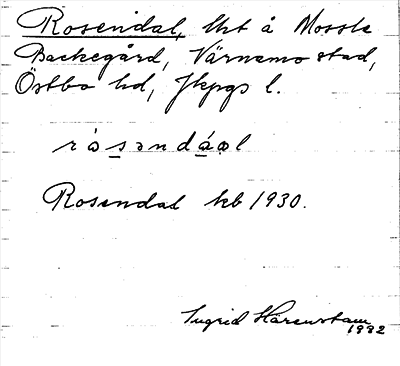 Rosendal, lht å Mossle
Backegård, Värnamo stad,
Östbo hd, Jkpgs l.
rósəndáəl
Rosendal kb 1930.
Ingrid Härenstam
1932